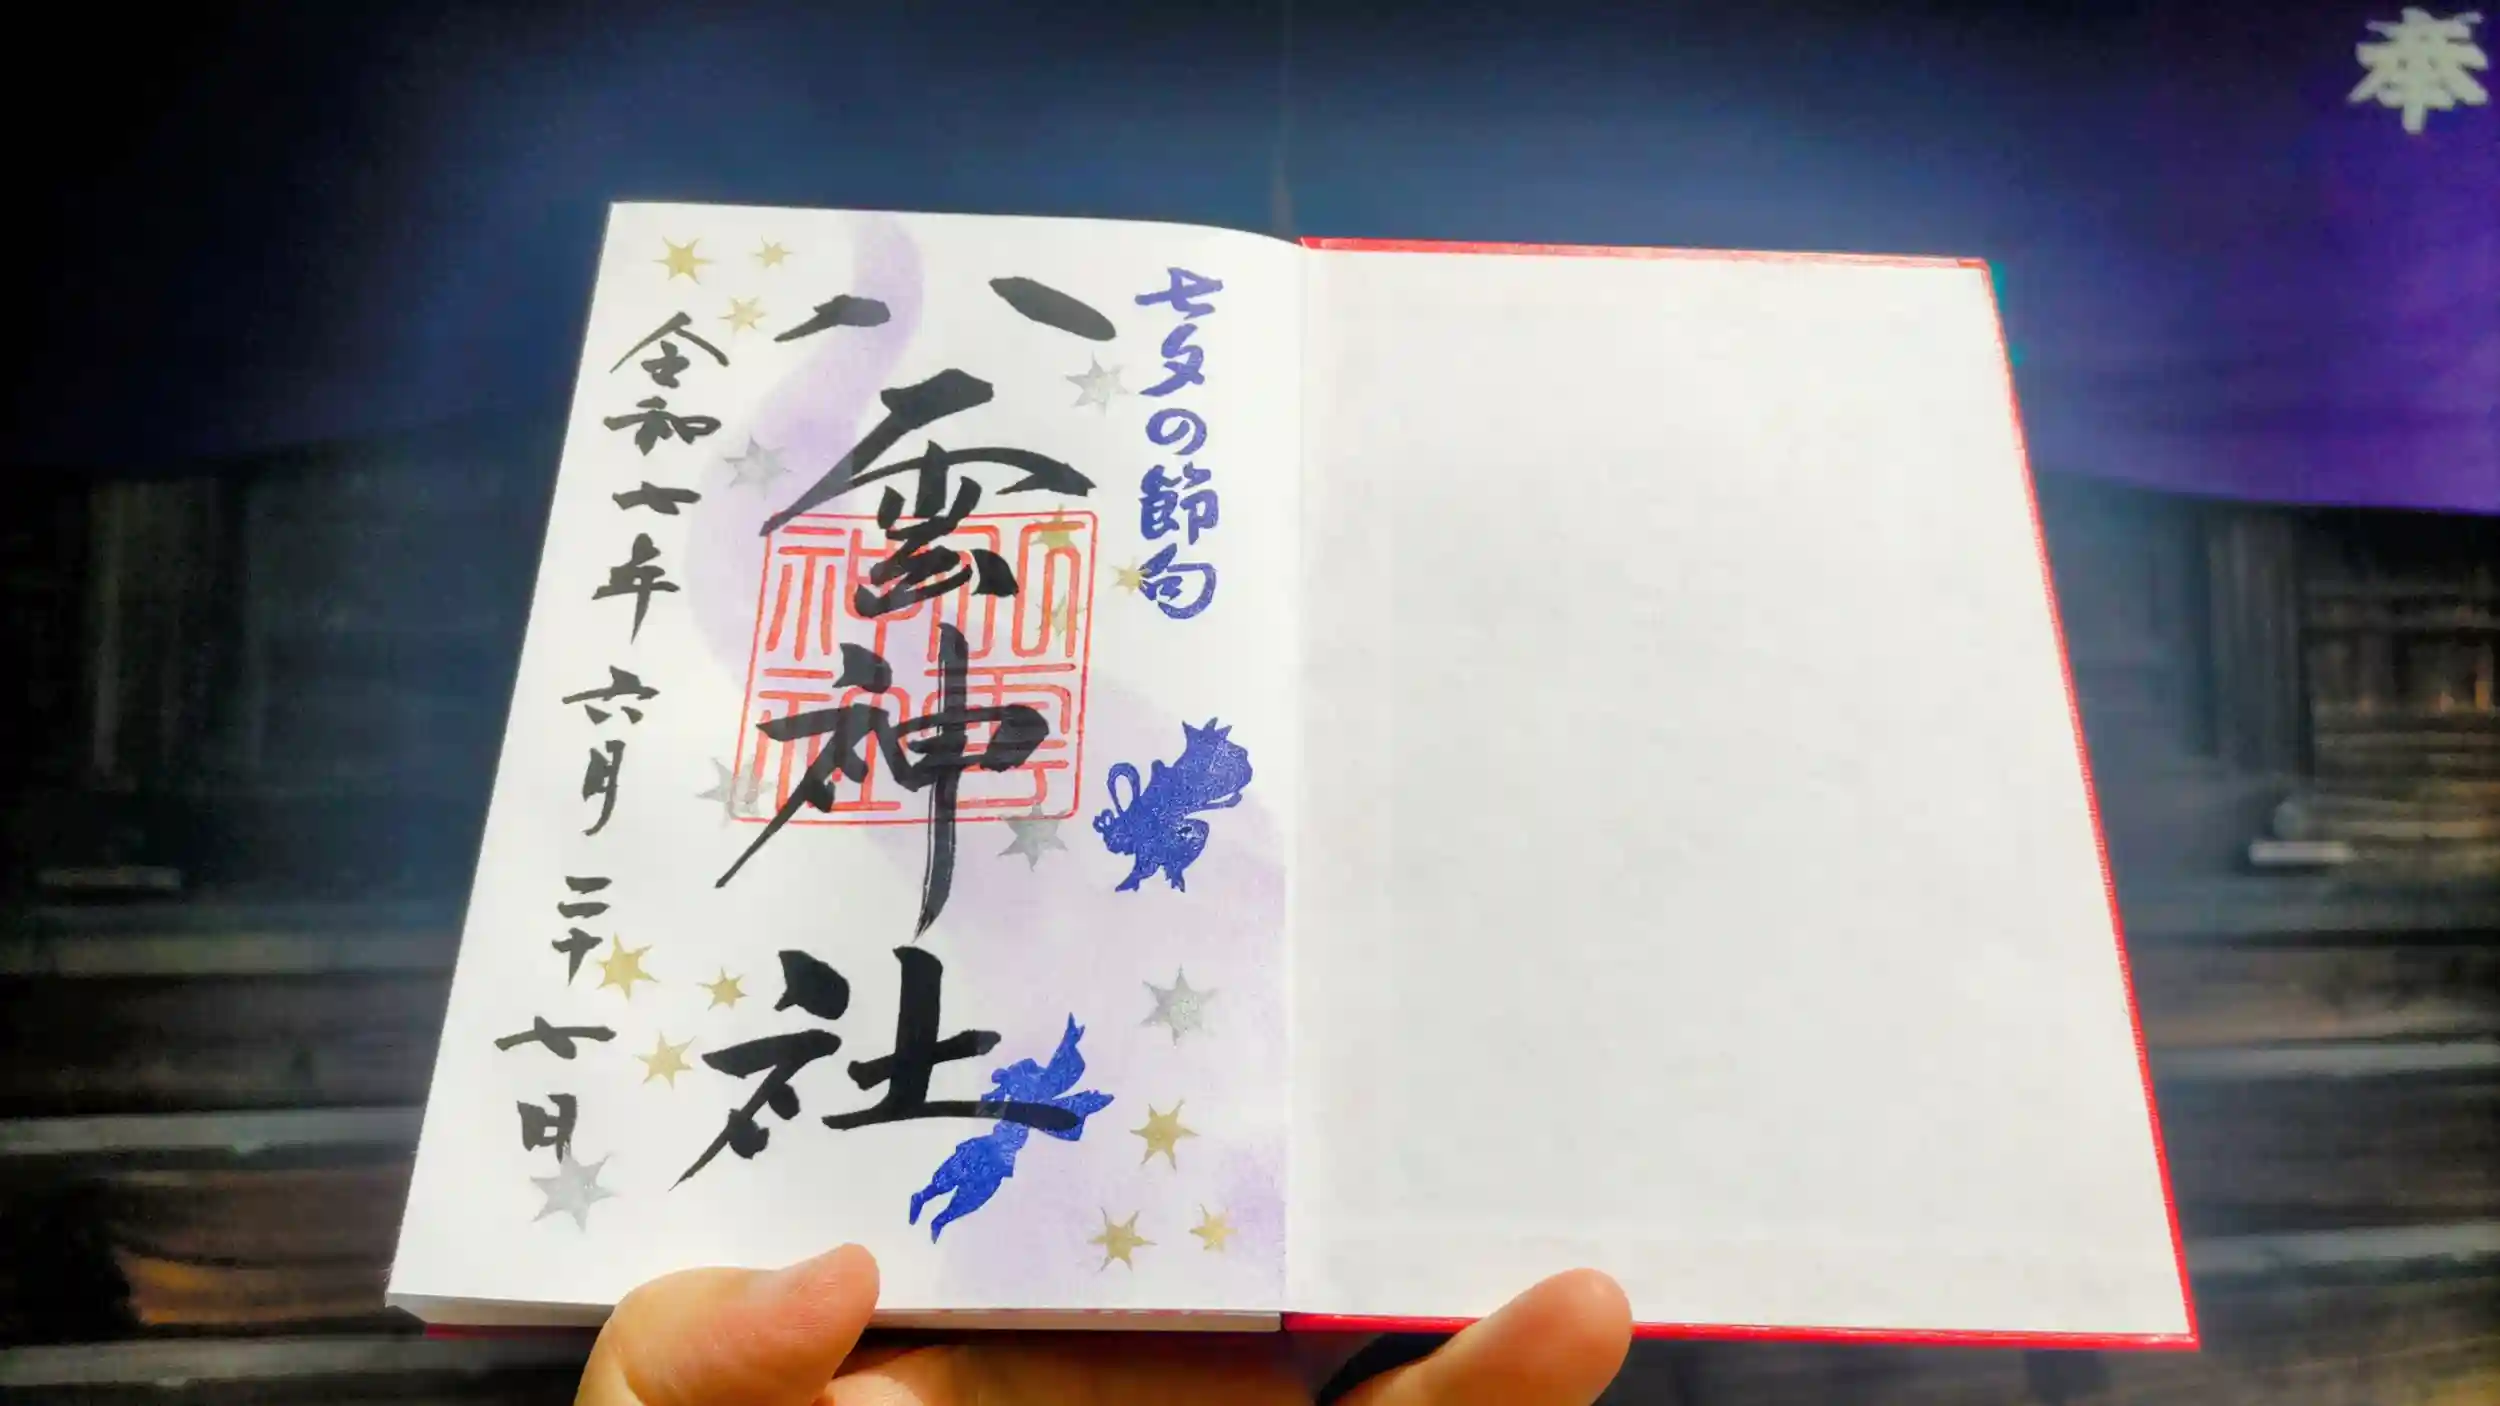 奉
七夕の節句
八雲神社
八雲神社
令和七年六月二十七日